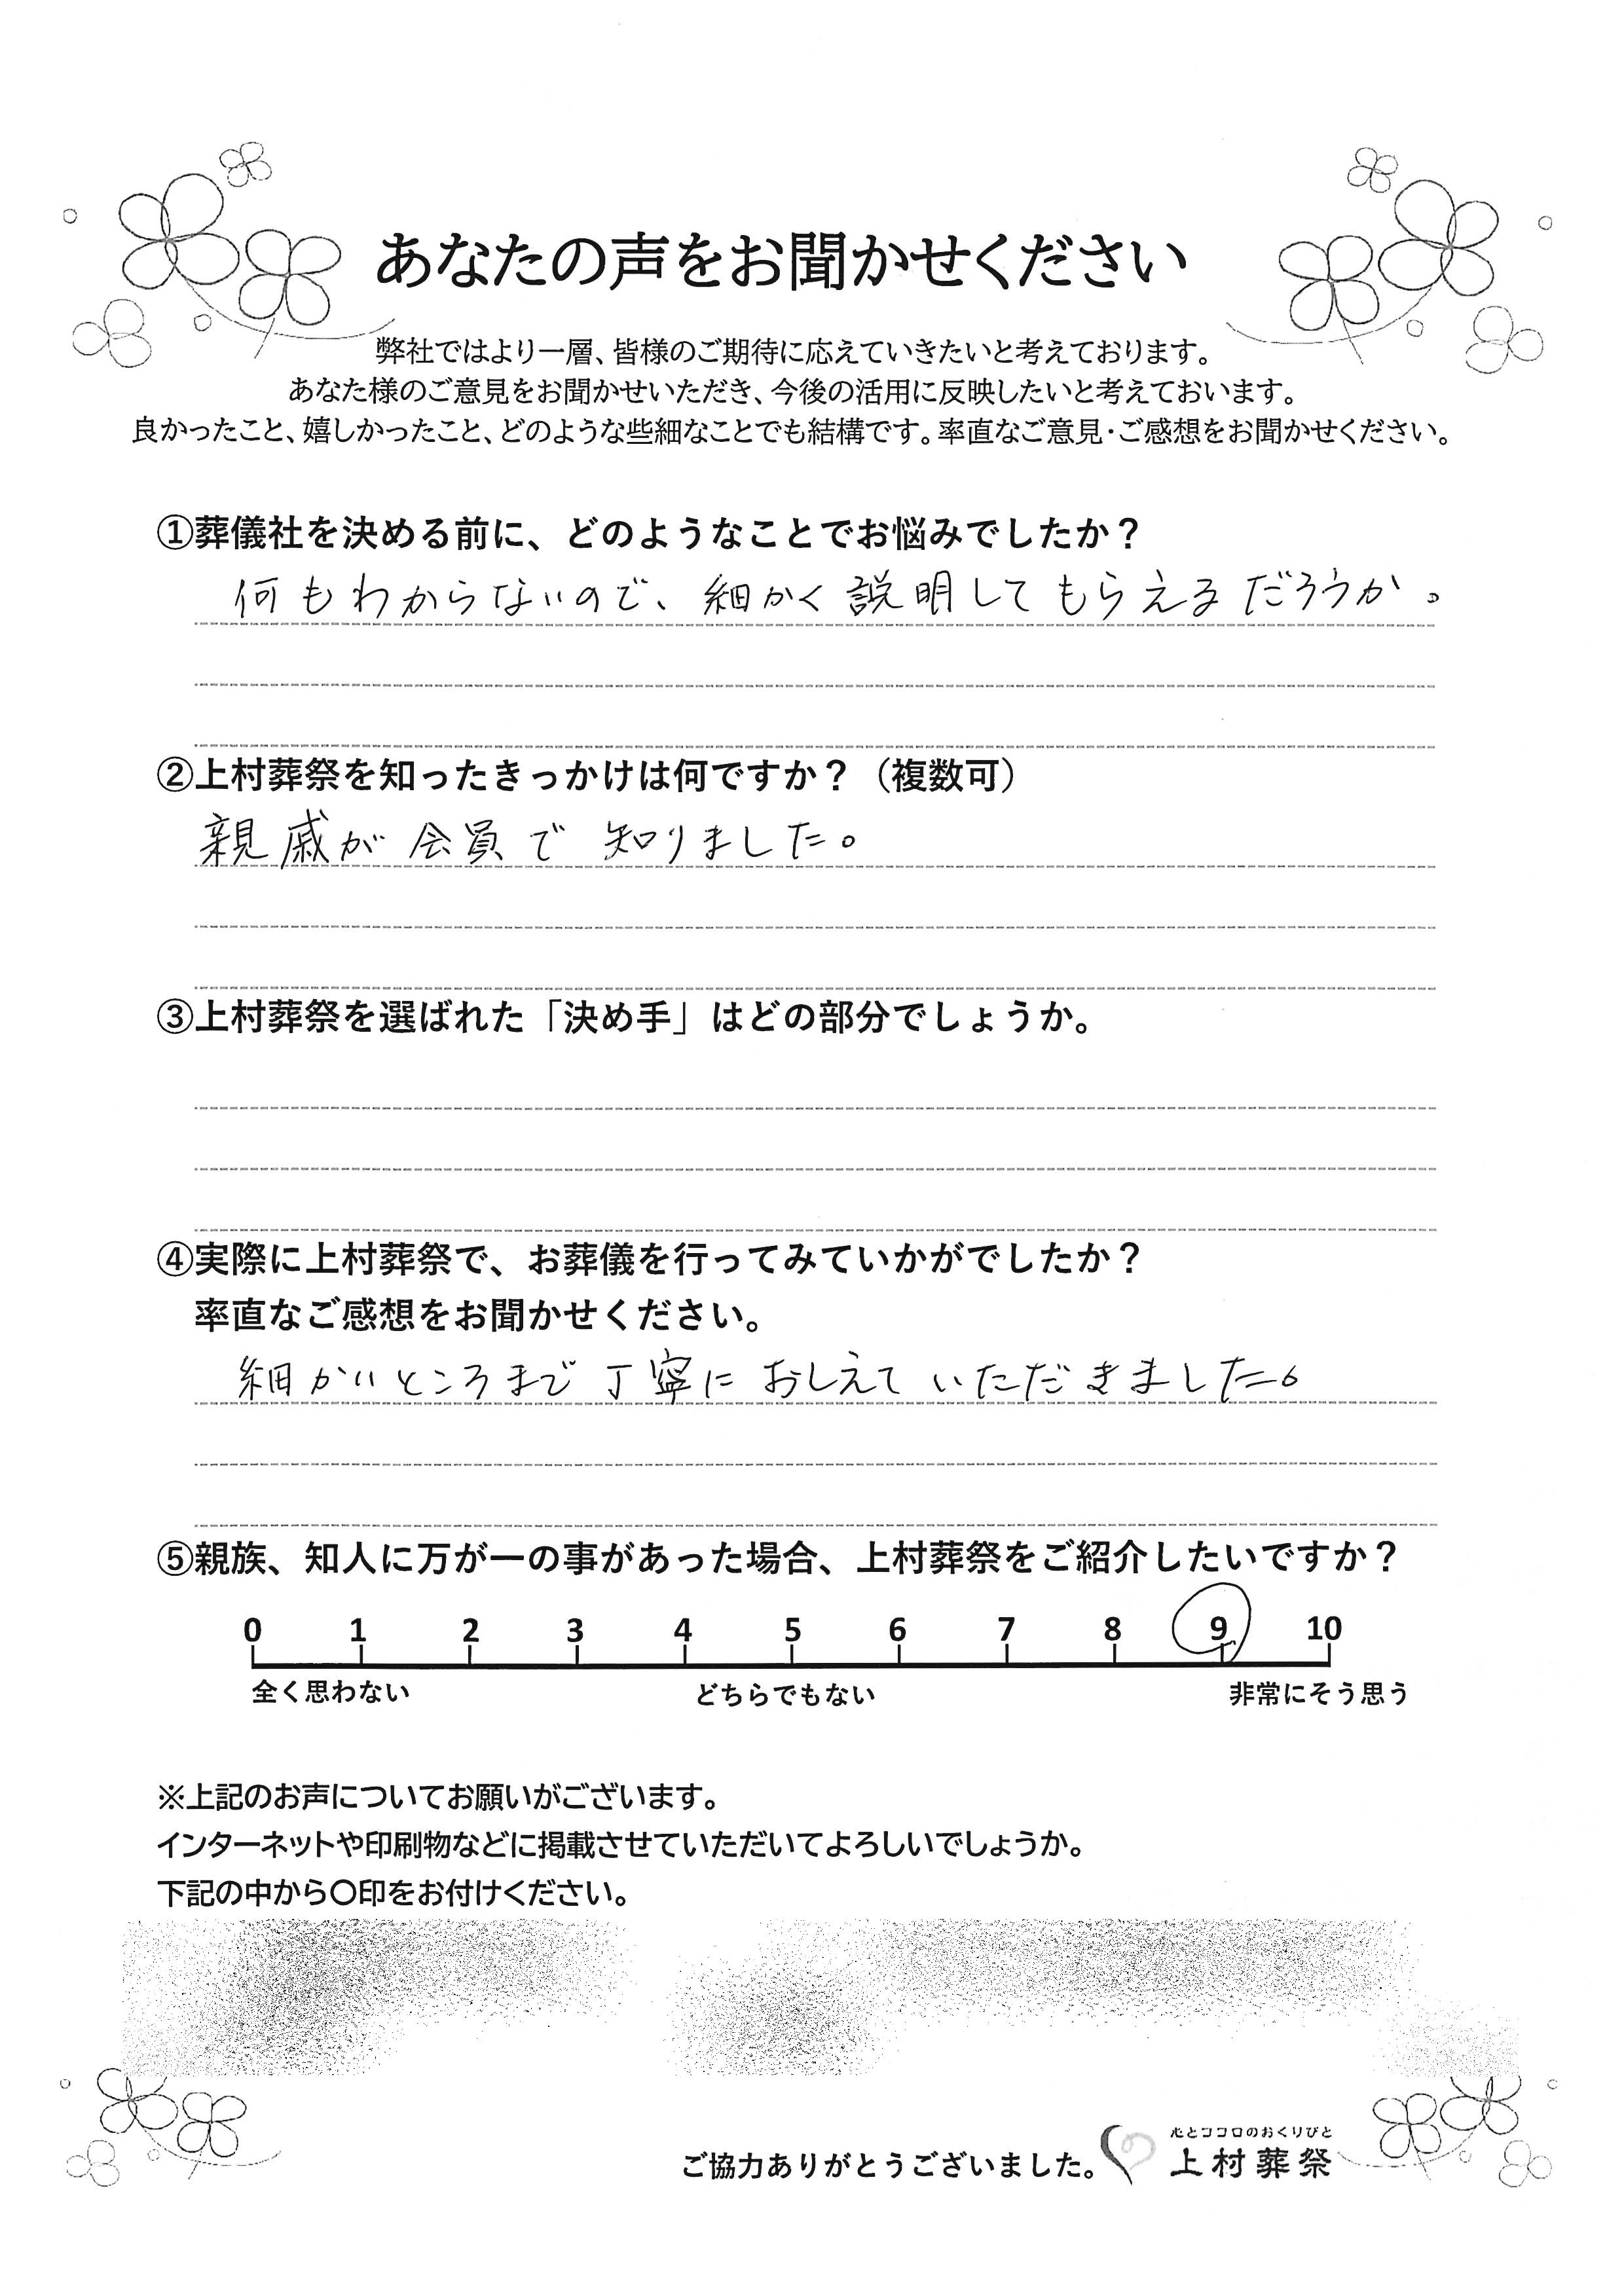 あなたの声をお聞かせください
弊社ではより一層、皆様のご期待に応えていきたいと考えております。
あなた様のご意見をお聞かせいただき、今後の活用に反映したいと考えておいます。
良かったこと、嬉しかったこと、どのような些細なことでも結構です。率直なご意見・ご感想をお聞かせください。
①葬儀社を決める前に、どのようなことでお悩みでしたか？
何もわからないので、細かく説明してもらえるだろうか。
②上村葬祭を知ったきっかけは何ですか？（複数可）
親戚が会員で知りました。
③上村葬祭を選ばれた「決め手」はどの部分でしょうか。
④実際に上村葬祭で、お葬儀を行ってみていかがでしたか？
率直なご感想をお聞かせください。
細かいところまで丁寧におしえていただきました。
⑤親族、知人に万が一の事があった場合、上村葬祭をご紹介したいですか？
0 1 2 3 4 5 6 7 8 9 10
全く思わない どちらでもない 非常にそう思う
※上記のお声についてお願いがございます。
インターネットや印刷物などに掲載させていただいてよろしいでしょうか。
下記の中から〇印をお付けください。
心とココロのおくりびと
ご協力ありがとうございました。 上村葬祭